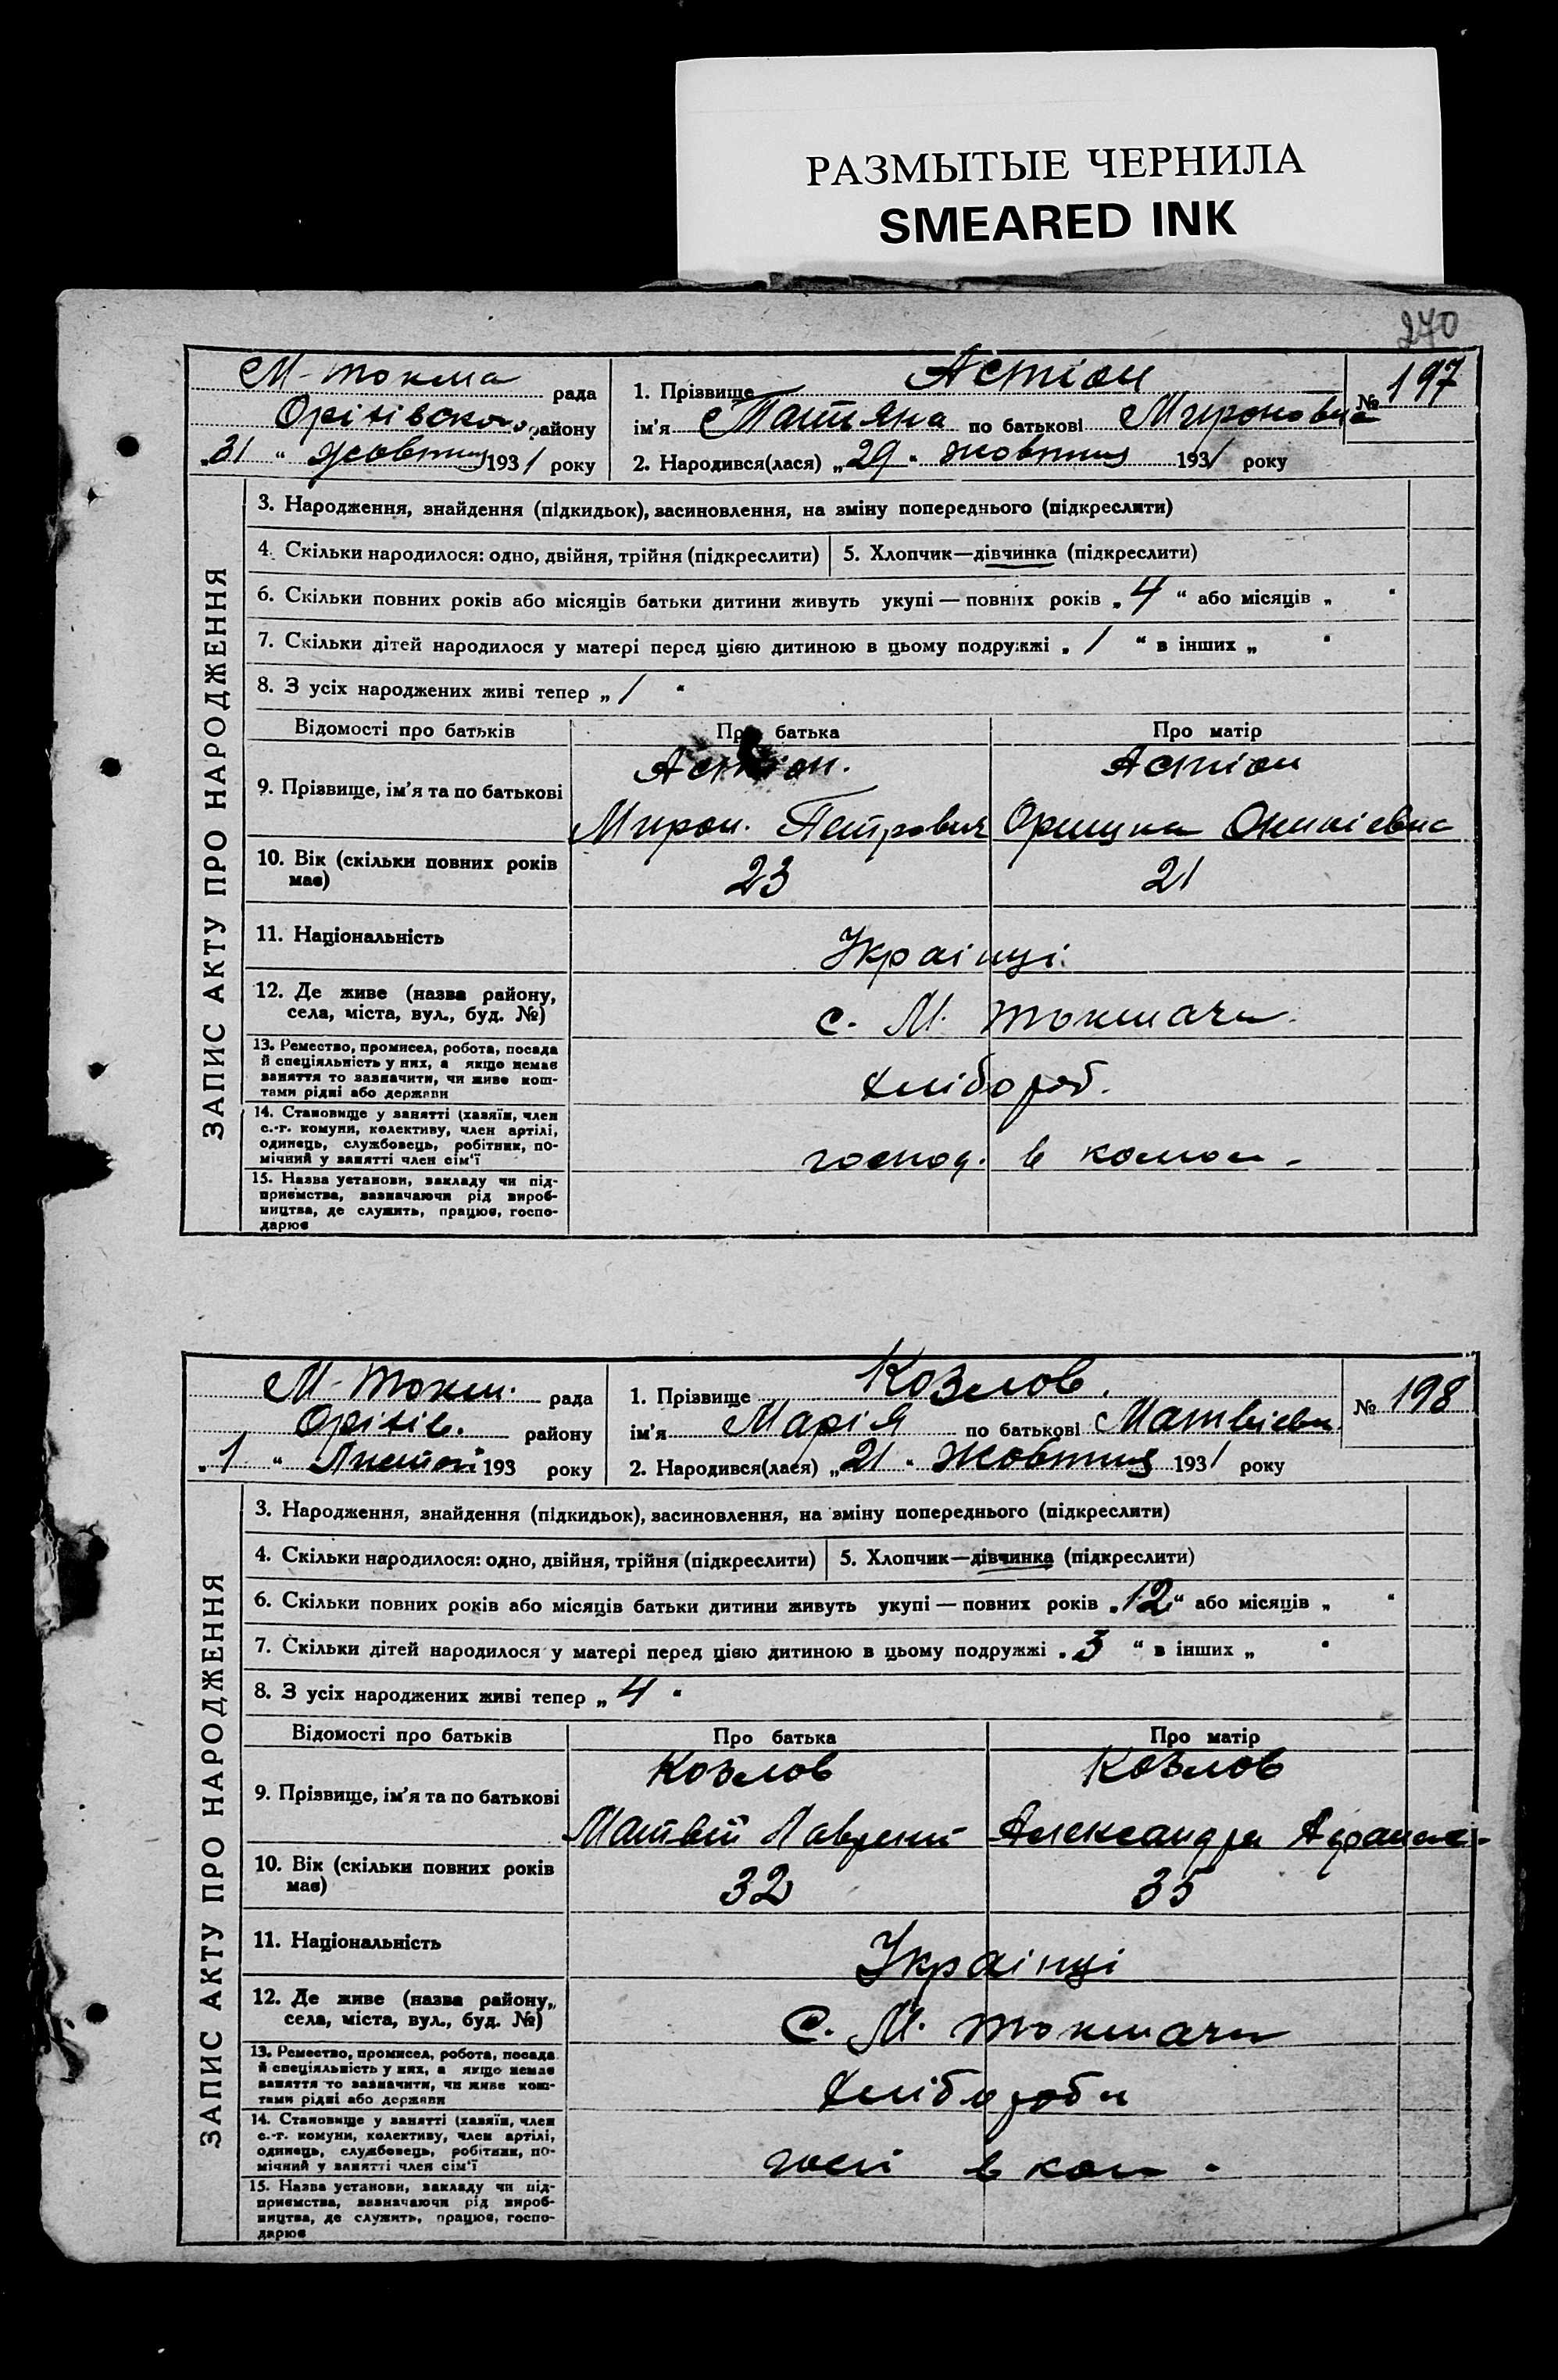 РАЗМЫТЫЕ ЧЕРНИЛА
SMEARED INK
270
М-Токма рада
Оріхівсько району
„31 “ Жовтня 1931 року
1. Прізвище Астіон
ім'я Татьяна по батькові Мироновна
2. Народився(лася) „29 “ жовтня 1931 року
№ 197
ЗАПИС АКТУ ПРО НАРОДЖЕННЯ
3. Народження, знайдення (підкидьок), засиновлення, на зміну попереднього (підкреслити)
4. Скільки народилося: одно, двійня, трійня (підкреслити) 5. Хлопчик—дівчинка (підкреслити)
6. Скільки повних років або місяців батьки дитини живуть укупі — повних років „ 4 “ або місяців „ “
7. Скільки дітей народилося у матері перед цією дитиною в цьому подружжі „ 1 “ в інших „ “
8. З усіх народжених живі тепер „ 1 “
Відомості про батьків Про батька Про матір
9. Прізвище, ім'я та по батькові
Астіон. Астіон
Мирон. Петрович Оришка
10. Вік (скільки повних років має) 23 21
11. Національність Україінці.
12. Де живе (назва району, села, міста, вул., буд. №) с. М. Токмачи
13. Ремество, промисел, робота, посада
й спеціяльність у них, а якщо немає
заняття то зазначити, чи живе кош-
тами рідні або держави
хлібороб.
14. Становище у занятті (хазяїн, член
с.-г. комуни, колективу, член артілі,
одинець, службовець, робітник, по-
мічний у занятті член сім'ї
господ. в
15. Назва установи, закладу чи під-
приємства, зазначаючи рід вироб-
ництва, де служить, працює, госпо-
дарює
М-Токм. рада
Оріхів. району
„1 “ Листоп 193 року
1. Прізвище Козлов.
ім'я Марія по батькові Матвієвн
2. Народився(лася) „21 “ Жовтня 1931 року
№ 198
ЗАПИС АКТУ ПРО НАРОДЖЕННЯ
3. Народження, знайдення (підкидьок), засиновлення, на зміну попереднього (підкреслити)
4. Скільки народилося: одно, двійня, трійня (підкреслити) 5. Хлопчик—дівчинка (підкреслити)
6. Скільки повних років або місяців батьки дитини живуть укупі — повних років „12“ або місяців „ “
7. Скільки дітей народилося у матері перед цією дитиною в цьому подружжі „3 “ в інших „ “
8. З усіх народжених живі тепер „ 4 “
Відомості про батьків Про батька Про матір
9. Прізвище, ім'я та по батькові
Козлов Козлов
Матвій Александра
10. Вік (скільки повних років має) 32 35
11. Національність Україінці
12. Де живе (назва району, села, міста, вул., буд. №) С. М. Токмачи
13. Ремество, промисел, робота, посада
й спеціяльність у них, а якщо немає
заняття то зазначити, чи живе кош-
тами рідні або держави
хлібороби
14. Становище у занятті (хазяїн, член
с.-г. комуни, колективу, член артілі,
одинець, службовець, робітник, по-
мічний у занятті член сім'ї
в ком
15. Назва установи, закладу чи під-
приємства, зазначаючи рід вироб-
ництва, де служить, працює, госпо-
дарює